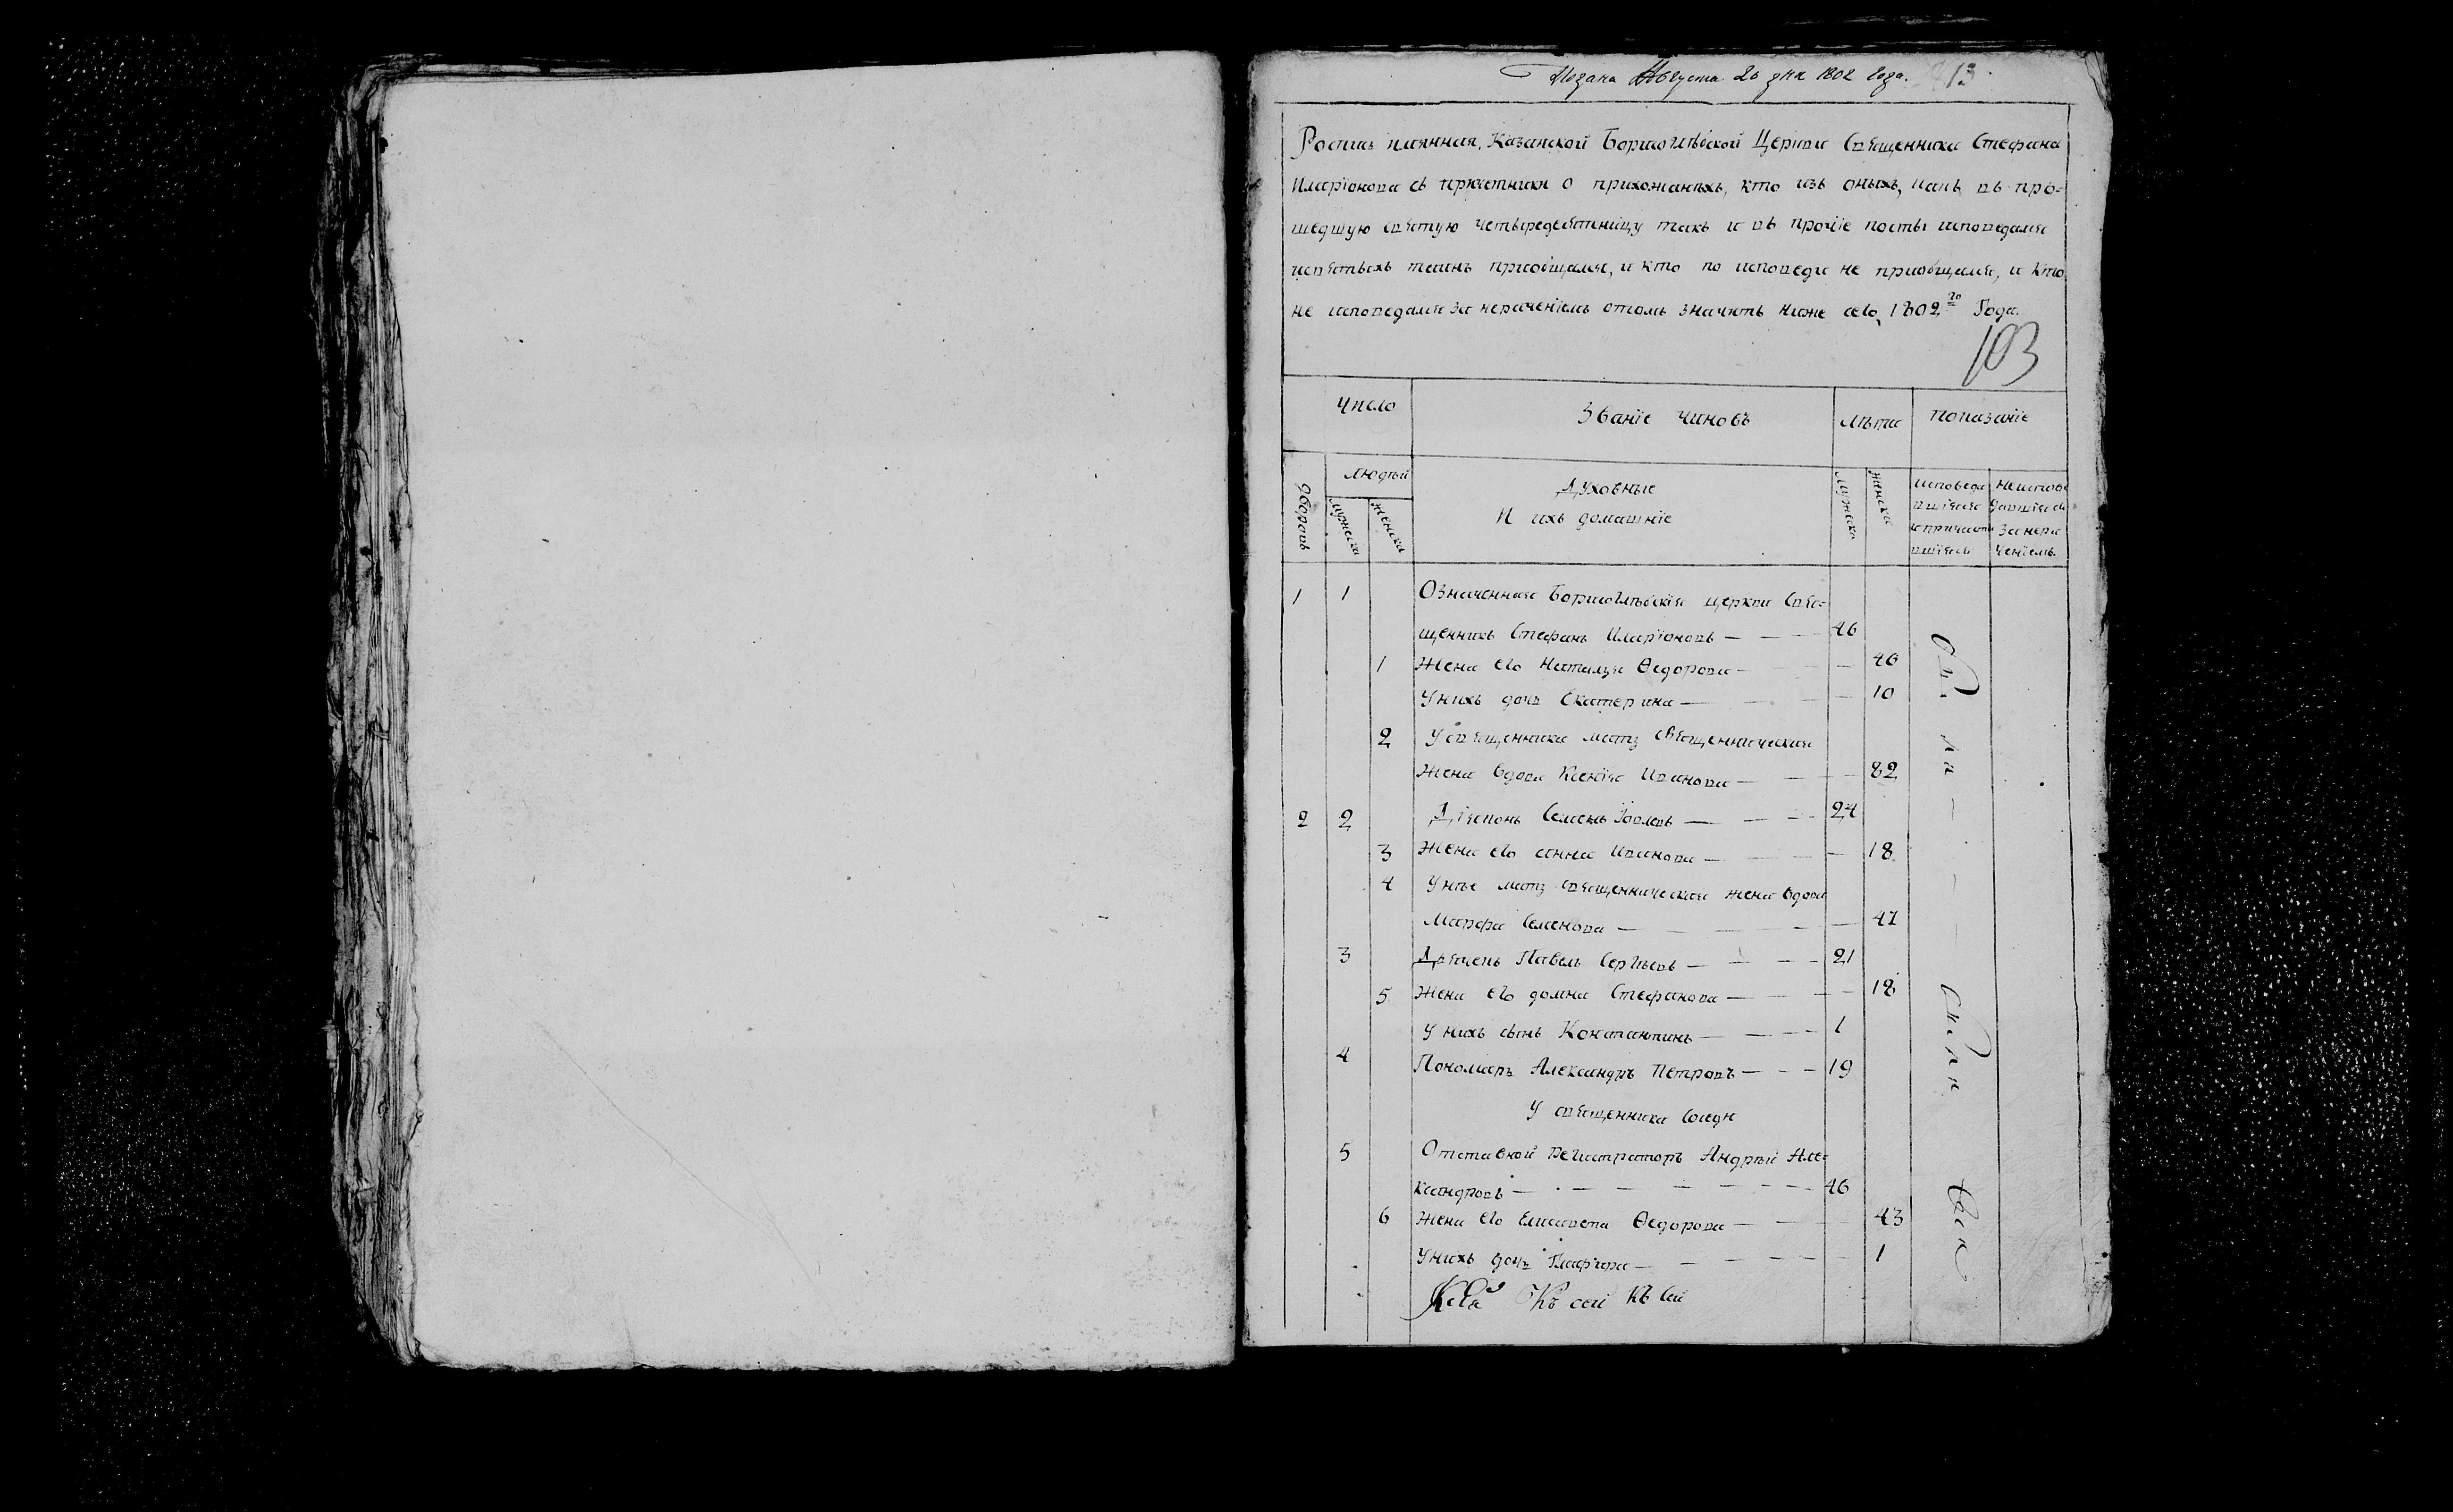 Подана Августа 20 дня 1802 года. 13
Роспись имянная, Казанской Борисоглѣбской Церкви Священника Стефана
Иларіонова съ причетники о прихожанѣхъ, кто изъ оныхъ, какъ въ про=
шедшую святую четыредесятницу такъ и въ прочіе посты исповедался
исвятыхъ таинъ приобщался, и кто по исповеди не приобщался, и кто
не исповедался за нераченіемъ отомъ значитъ ниже сего, 1802го Года.
103
Число Званіе чиновъ Лѣта показаніе
людѣй
дворовъ мужеска женска Духовные мужеска женска
И ихъ домашніе
исповеда
вшіяся
и причасти
вшіяся
неиспове
давшіяся
за нера
ченіемъ.
1 1 Означенная Борисоглѣбскія церкви Свя=
щенникъ Стефанъ Иларіоновъ — 46
1 Жена его Наталья Ѳедорова — 40
Унихъ дочь Екатерина — 10
2 У священника мать священническая
жена вдова Ксенія Иванова — 82
2 2 Діяконъ Семенъ — 24
3 Жена его анна Иванова — 18
4 У нее мать священническая жена вдова
Марфа Семенова — 47
3 Дьячекъ Павелъ Сергѣевъ — 21
5 Жена его домна Стефанова — 18
У нихъ сынъ Константинъ — 1
4 Пономарь Александръ Петровъ — 19
У священника
5 Отставной Регистраторъ Андрѣй Але=
ксандровъ — 46
6 Жена его Елисавета Ѳедорова — 43
Унихъ дочь Глафира — 1
Къ сей къ сей